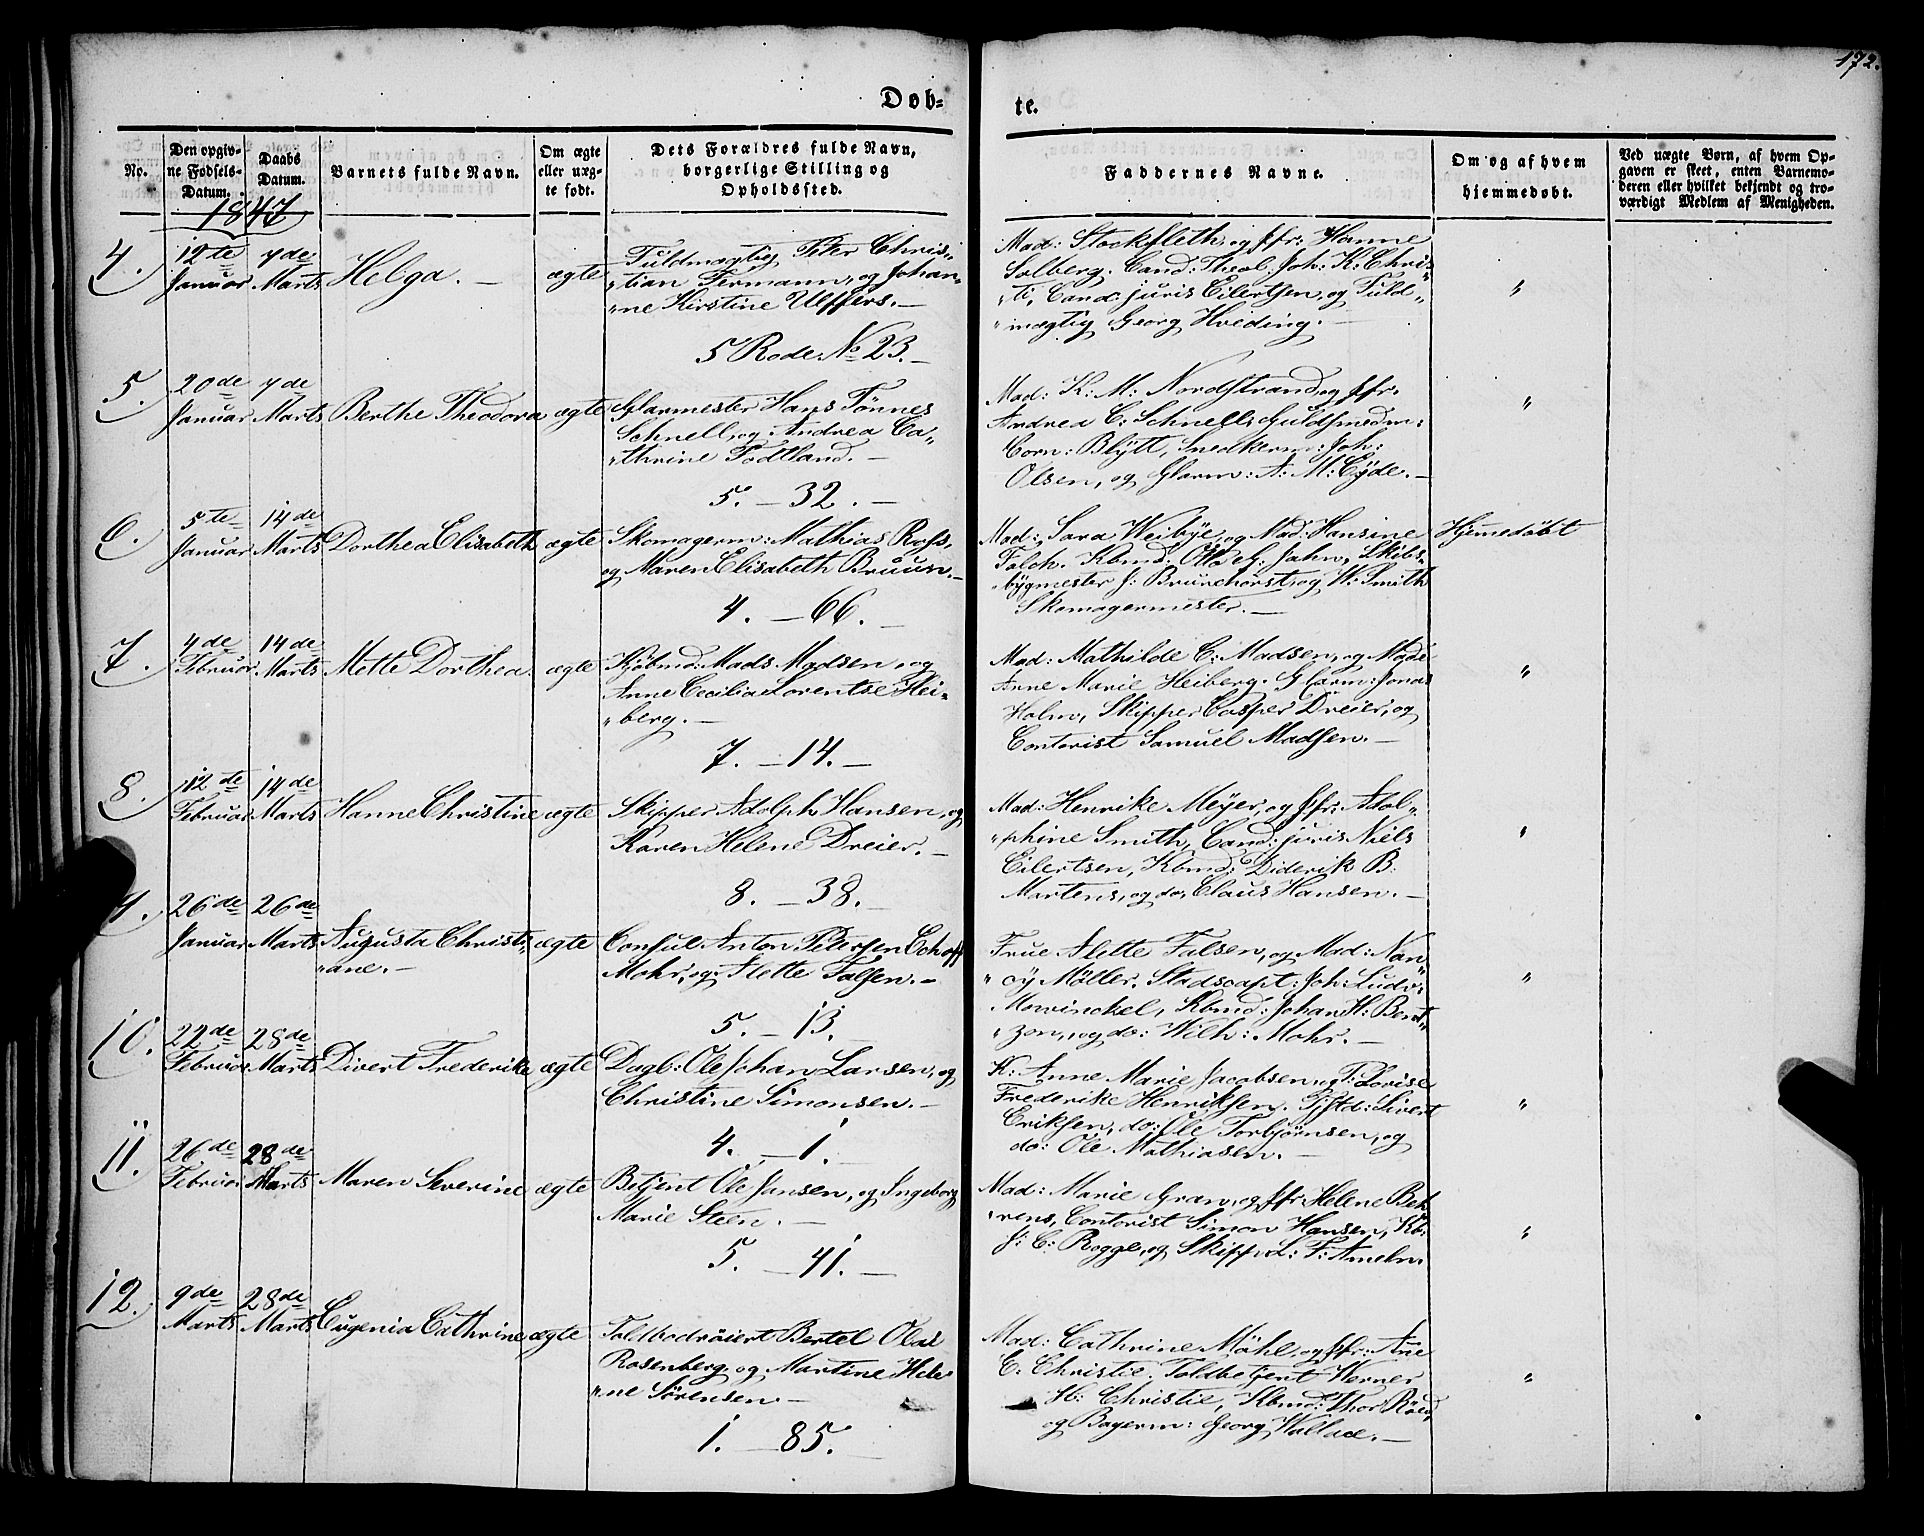 172.
Døb-
te.
No.
Den opgiv-
ne Fødsels-
Datum.
Daabs
Datum.
Barnets fulde Navn.
Om ægte
eller uæg-
te født.
Dets Forældres fulde Navn,
borgerlige Stilling og
Opholdssted.
Faddernes Navne.
Om og af hvem
hjemmedøbt.
Ved uægte Børn, af hvem Op-
gaven er skeet, enten Barnemo-
deren eller hvilket bekjendt og tro-
værdigt Medlem af Menigheden.
1847
4.
12te
Januar
7de
Marts
Helga. —
ægte
Fuldmægtig Peter Chris-
"tian Fermann, og Johan-
"ne Kirstine Ulffers. —
5 Rode No 23. —
Mad: Stockfleth, og Jfr: Hanne
Solberg. Cand: Theol: Joh: K: Chris
"ti, Cand: juris Eilertsen, og Fuld-
"mægtig Georg Hveding. —
"
5.
20de
Januar
7de
Marts
Berthe Theodora
ægte
Glarmester Hans Tønnes
Schnell, og Andrea Ca-
"thrine Todtland. —
5. — 32. —
Mad: K: M: Nordstrand, og Jfr.
Andrea C: Schnell. Guldsmedm:
Corn: Blÿtt, Snedkerm: Joh:
Olsen, og Glarm: A: M: Eÿde. —
"
6.
5te
Januar
14de
Marts
Dorthea Elisabeth
ægte
Skomagerm: Mathias Ross,
og Maren Elisabeth Bruun. —
4. — 66. —
Mad: Sara Weibÿe, og Mad: Hansine
Falch. Kbmd: Otto G: Jahn, Skibs
"bÿgmester J: Brunchorst, og W: Smith
Skomagermester. —
Hjemedøbt
7.
4de
Februar
14de
Marts
Mette Dorthea.
ægte
Kjøbmd: Mads Madsen, og
Anne Cecilia Lorentse Hei-
"berg. —
7. — 14. —
Mad: Mathilde C: Madsen, og Mad:
Anne Marie Heiberg. Glarm: Jonas
Holm, Skipper Casper Dreier, og
Contorist Samuel Madsen. —
"
8.
12te
Februar
14de
Marts
Hanne Christine
ægte
Skipper Adolph Hansen, og
Karen Helene Dreier. —
8. — 38. —
Mad: Henrike Meÿer, og Jfr: Adol-
"phine Smith, Cand: juris Niels
Eilertsen, Kbmd: Diderik B:
Martens, og do. Claus Hansen. —
"
9.
26de
Januar
26de
Marts
Augusta Christi-
"ane. —
ægte
Consul Anton Petersen Echoff
Mohr, og Alette Falsen. —
5. — 13. —
Frue Alette Falsen, og Mad: Nan
"cÿ Møller. Stadscapt: Joh: Ludv:
Mowinckel, Kbmd: Johan H: Bent-
"zon, og do: Wilh: Mohr. —
"
10.
22de
Februar
28de
Marts
Divert Frederike
ægte
Dagl: Ole Johan Larsen, og
Christine Simonsen. —
4. — 1. —
K: Anne Marie Jacobsen, og P: Lovise
Frederike Henriksen. Tjstd: Sivert
Eriksen, do: Ole Torbjørnsen, og
do: Ole Mathiasen. —
"
11.
26de
Februar
28de
Marts
Maren Severine
ægte
Betjent Ole Jansen, og Ingeborg
Marie Steen. —
5. — 41. —
Mad: Marie Gran, og Jfr: Helene Beh
"rens, Contorist Simon Hansen, Kb:
J: C: Rogge, og Skipp: L: F: Ameln.
"
12.
9de
Marts
28de
Marts
Eugenia Cathrine
ægte
Toldbodrøiert Bertel Olai
Rosenberg, og Martine Hele-
"ne Sørensen —
1. — 85.
Mad: Cathrine Møhl, og Jfr: Ane
C: Christie. Toldbetjent Werner
H: Christie, Kbmd: Thor Røed,
og Bagerm: Georg Wallace. —
"